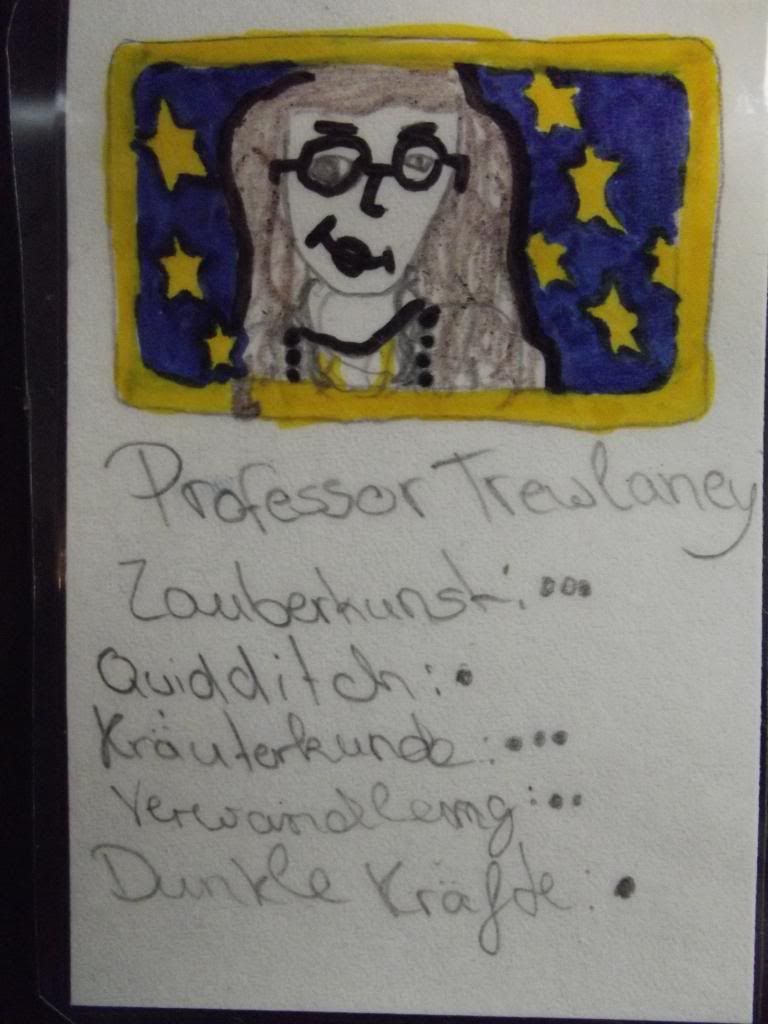 Professor Trewlaney
Zauberkunst: •••
Quidditch: •
Kräuterkunde: •••
Verwandlung: •••
Dunkle Kräfte: •